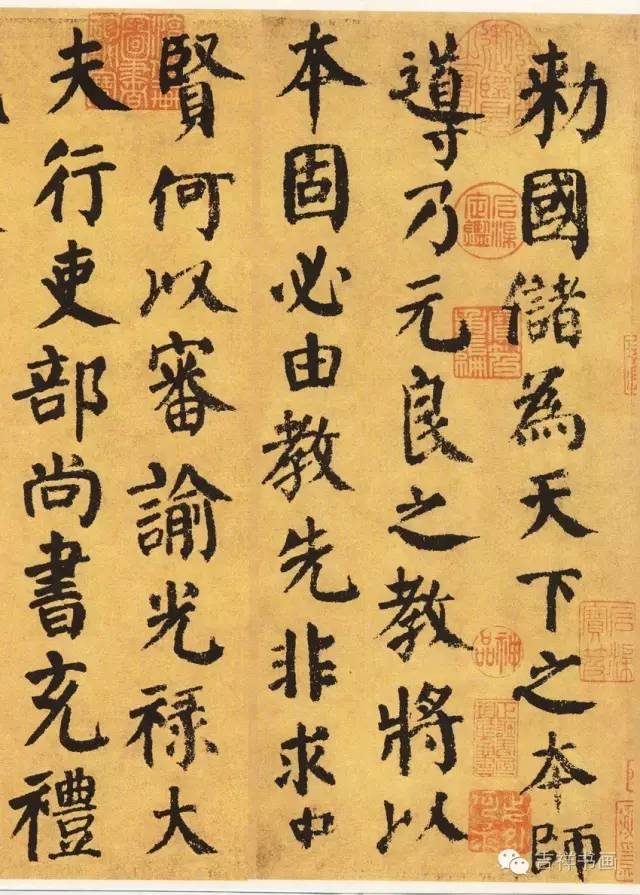 勅國儲為天下之本師
導乃元良之教將以
本固必由教先非求中
賢何以審諭光祿大
夫行吏部尚書充禮
神品
吉祥书画